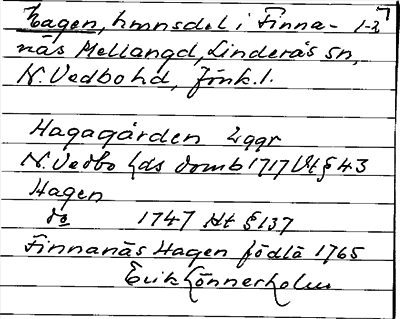 Hagen, hmnsdel i Finna- 1-2
näs Mellangd, Linderås sn,
N. Vedbo hd, Jönk. l.
Hagagården 2 ggr
N. Vedbo hds domb 1717 Vt § 43
Hagen
do 1747 Ht § 137
Finnanäs Hagen födda 1765
Erik Lönnerholm